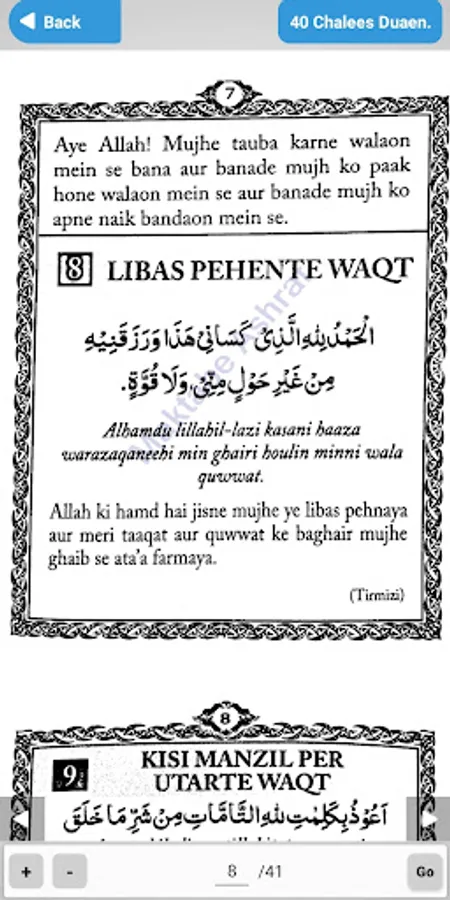 Back
40 Chalees Duaen.
7
Aye Allah! Mujhe tauba karne walaon
mein se bana aur banade mujh ko paak
hone walaon mein se aur banade mujh ko
apne naik bandaon mein se.
8 LIBAS PEHENTE WAQT
الْحَمْدُ لِلّٰهِ الَّذِیْ كَسَانِیْ هٰذَا وَرَزَقَنِیْهِ
مِنْ غَیْرِ حَوْلٍ مِّنِّیْ وَلَا قُوَّةٍ.
Alhamdu lillahil-lazi kasani haaza
warazaqaneehi min ghairi houlin minni wala
quwwat.
Allah ki hamd hai jisne mujhe ye libas pehnaya
aur meri taaqat aur quwwat ke baghair mujhe
ghaib se ata'a farmaya.
(Tirmizi)
Maktabe Ashraf
8
9 KISI MANZIL PER
UTARTE WAQT
اَعُوْذُ بِكَلِمٰتِ لِلّٰهِ التَّامَّاتِ مِنْ شَرِّ مَا خَلَقَ
+ - 8 /41 Go